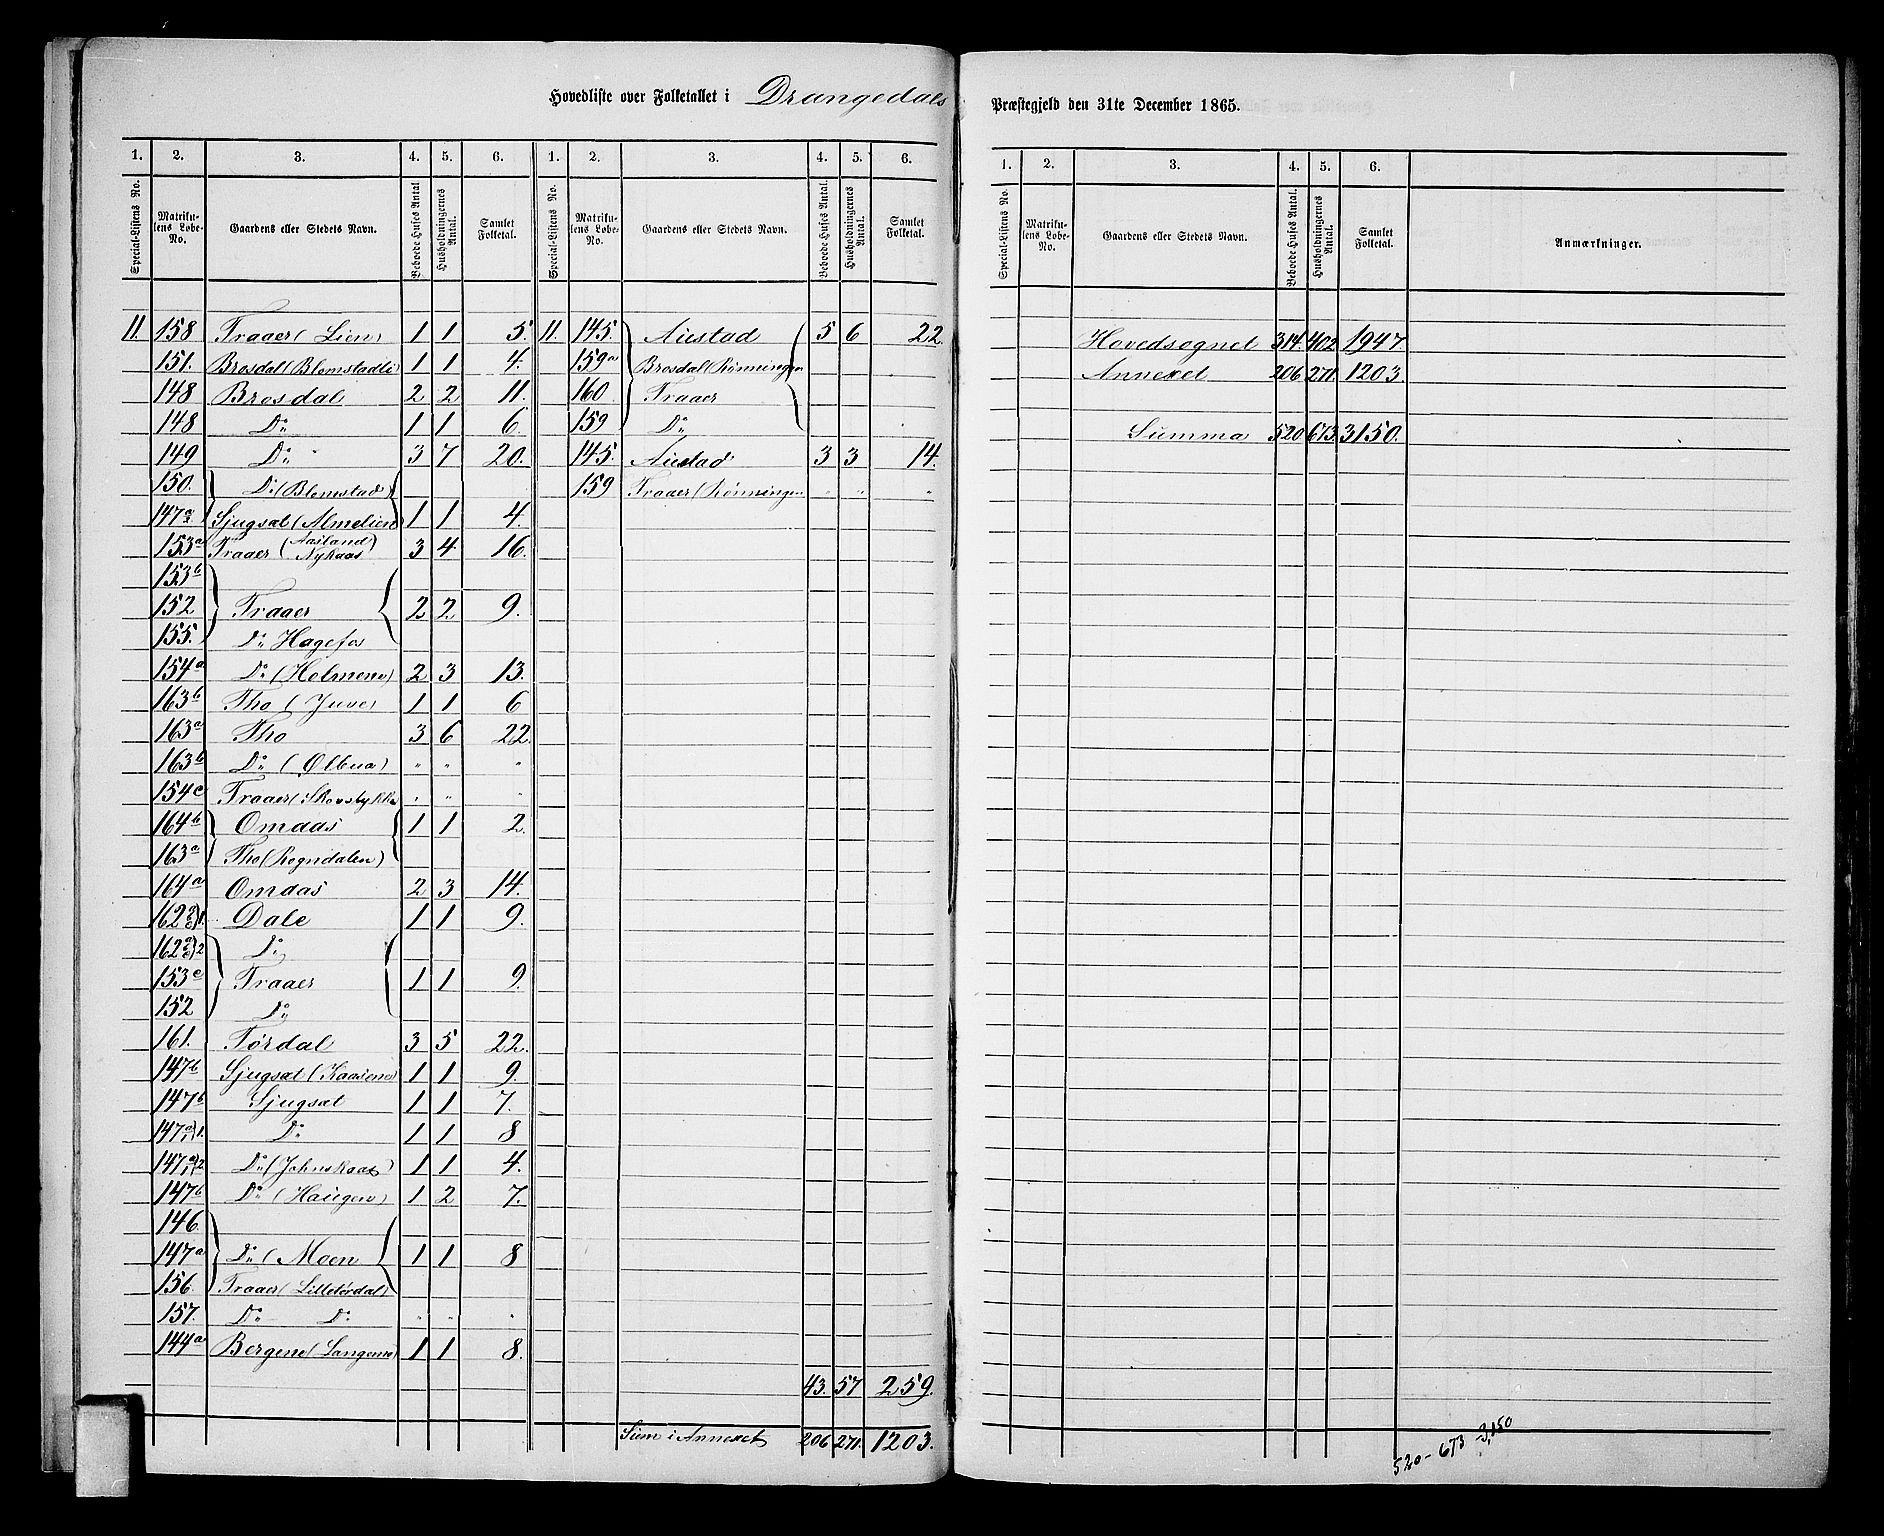 Hovedliste over Folketallet i Drangedals Præstegjeld den 31te December 1865.
1. 2. 3. 4. 5. 6. 1. 2. 3. 4. 5. 6.
Special-Listens No. Matrikulens Løbe-No. Gaardens eller Stedets Navn. Beboede Huses Antal. Husholdningernes Antal. Samlet Folketal. Special-Listens No. Matrikulens Løbe-No. Gaardens eller Stedets Navn. Beboede Huses Antal. Husholdningernes Antal. Samlet Folketal.
11. 158 Traaer (Lien) 1 1 5.
151. Brosdal (Blomstadli) 1 1 4.
148 Brosdal 2 2 11.
148 Do 1 1 6.
149 Do 3 7 20.
150. Do (Blomstad)
147a Sjugsat (Almelien) 1 1 4.
153a Traaer (Aasland Nykaas) 3 4 16.
153b
152 Traaer 2 2 9.
155. Do Hagefos
154a Do (Holmen) 2 3 13.
163b Tho (Juve) 1 1 6
163a Tho 3 6 22.
163b Do (Ølbua) " " "
154c Traaer (Skovstykke) " " "
164b Omaas 1 1 2.
163a Tho (Rogndalen)
164a Omaas 2 3 14.
162 a c) 1. Dale 1 1 9.
162 a c) 2 Do
153c Traaer 1 1 9.
152 Do
161. Tørdal 3 5 22.
147b Sjugsat (Kaasene) 1 1 9.
147b Sjugsat 1 1 7.
147a) 1. Do 1 1 8
147a) 2 Do (Johnskaas) 1 1 4.
147b Do (Haugen) 1 2 7.
146.
147a Do (Moen 1 1 8
156. Traaer (Lilletørdal)
157. Do Do " " "
144a Bergene (Langemo) 1 1 8.
11. 145. Austad 5 6 22.
159a Brosdal (Rønningen
160. Traaer
159 Do
145. Austad 3 3 14.
159 Traaer (Rønningen " " "
43. 57 259.
Sum i Annexet 206 271. 1203.
1. 2. 3. 4. 5. 6.
Special-Listens No. Matrikulens Løbe-No. Gaardens eller Stedets Navn. Beboede Huses Antal. Husholdningernes Antal. Samlet Folketal. Anmærkninger.
Hovedsognet 314. 402 1947.
Annexet 206 271. 1203.
Summa 520. 673. 3150.
520 - 673 - 3,150